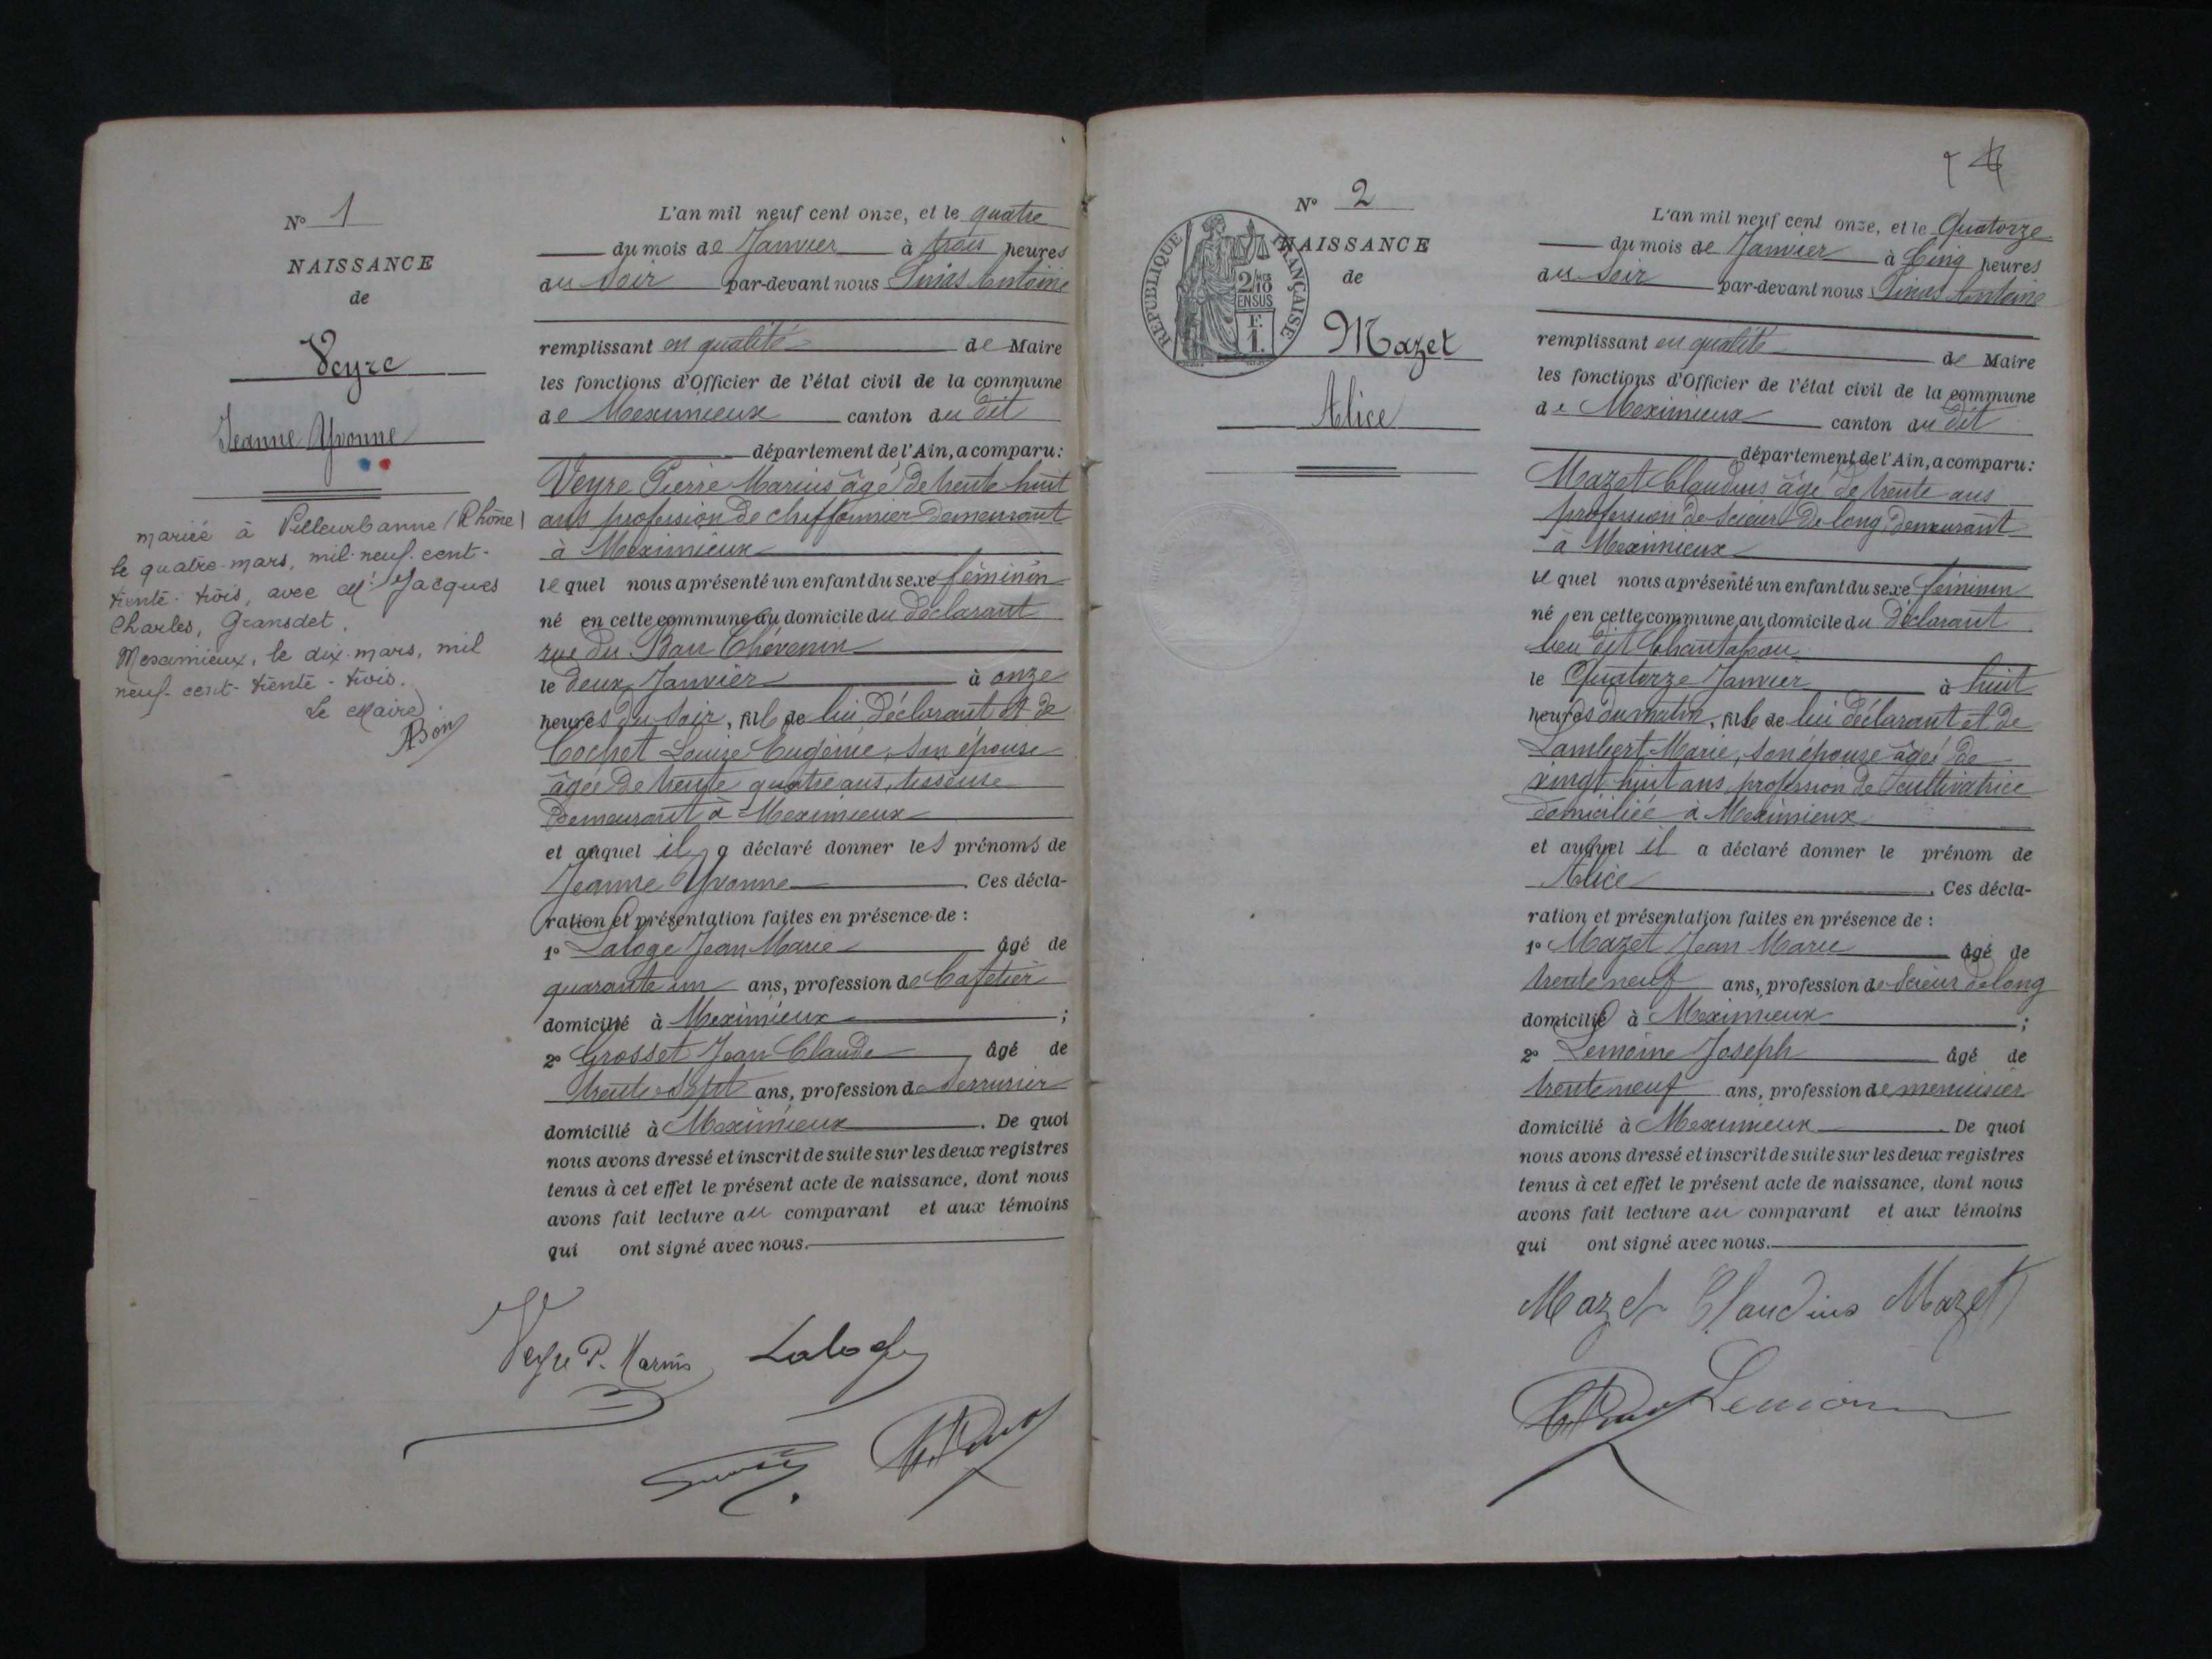 N° 1
NAISSANCE
de
Veyre
Jeanne Yvonne
mariée à Villeurbanne (Rhône)
le quatre mars, mil neuf cent
trente trois, avec Mr Jacques
Charles, Gransdet.
Meximieux, le dix mars, mil
neuf cent trente trois.
Le Maire
ABon
L'an mil neuf cent onze, et le quatre
du mois de Janvier à trois heures
du Soir par-devant nous Antoine
remplissant en qualité de Maire
les fonctions d'Officier de l'état civil de la commune
de Meximieux canton du dit
département de l'Ain, a comparu:
Veyre Pierre Marius âgé de trente huit
ans profession de chiffonnier demeurant
à Meximieux
lequel nous a présenté un enfant du sexe féminin
né en cette commune au domicile du déclarant
rue du
le deux Janvier à onze
heures du Soir, fille de lui déclarant et de
Cochet Louise Eugénie, son épouse
âgée de trente quatre ans, tisseuse
demeurant à Meximieux
et auquel il a déclaré donner les prénoms de
Jeanne Yvonne. Ces décla-
ration et présentation faites en présence de :
1° Laloge Jean Marie âgé de
quarante un ans, profession de Cafetier
domicilié à Meximieux ;
2° Grosset Jean Claude âgé de
trente sept ans, profession de Serrurier
domicilié à Meximieux. De quoi
nous avons dressé et inscrit de suite sur les deux registres
tenus à cet effet le présent acte de naissance, dont nous
avons fait lecture au comparant et aux témoins
qui ont signé avec nous.
Veyre P. Marius Laloge
N° 2
NAISSANCE
de
Mazet
Alice
REPUBLIQUE FRANÇAISE
2/10
EN SUS
F.
1.
L'an mil neuf cent onze, et le Quatorze
du mois de Janvier à Cinq heures
du Soir par-devant nous Antoine
remplissant en qualité de Maire
les fonctions d'Officier de l'état civil de la commune
de Meximieux canton du dit
département de l'Ain, a comparu:
Mazet Claudius âgé de trente ans
profession de Scieur de long, demeurant
à Meximieux
lequel nous a présenté un enfant du sexe féminin
né en cette commune, au domicile du Déclarant
lieu dit
le Quatorze Janvier à huit
heures du matin, fille de lui déclarant et de
Lambert Marie, son épouse âgée de
vingt huit ans profession de cultivatrice
domiciliée à Meximieux
et auquel il a déclaré donner le prénom de
Alice. Ces décla-
ration et présentation faites en présence de :
1° Mazet Jean Marie âgé de
trente neuf ans, profession de Scieur de long
domicilié à Meximieux ;
2° Lemoine Joseph âgé de
trente neuf ans, profession de menuisier
domicilié à Meximieux. De quoi
nous avons dressé et inscrit de suite sur les deux registres
tenus à cet effet le présent acte de naissance, dont nous
avons fait lecture au comparant et aux témoins
qui ont signé avec nous.
Mazet Claudius Mazet
Lemoine